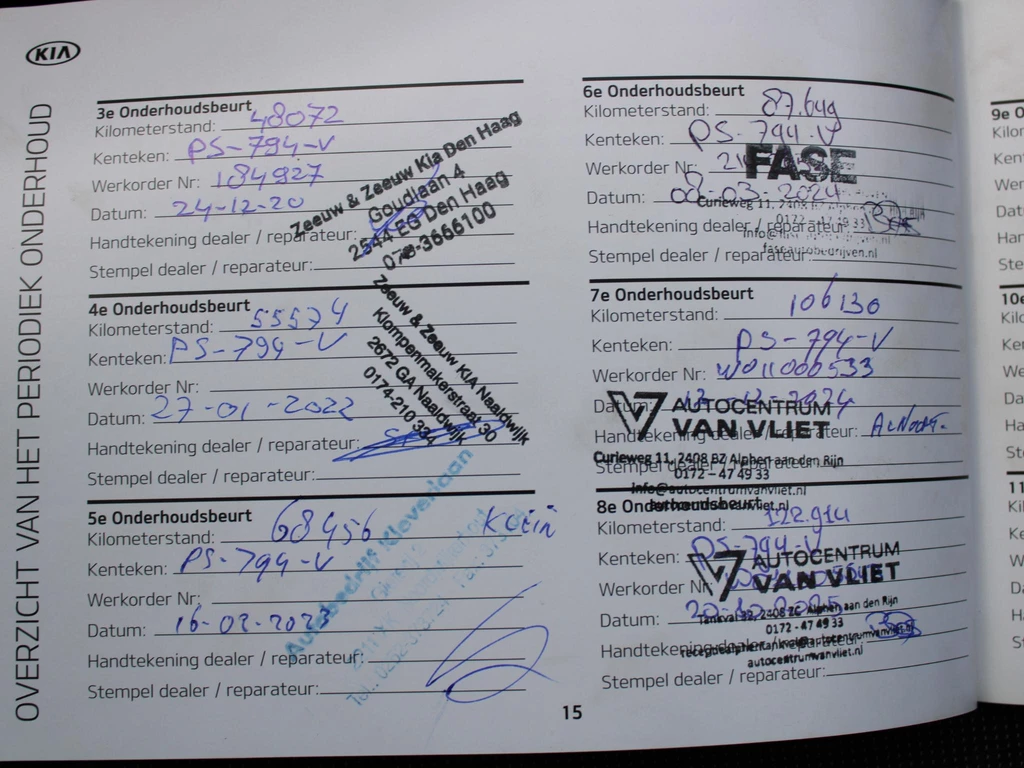 KIA
OVERZICHT VAN HET PERIODIEK ONDERHOUD
3e Onderhoudsbeurt
Kilometerstand: 48072
Kenteken: PS-794-V
Werkorder Nr: 184927
Datum: 24-12-20
Handtekening dealer / reparateur:
Stempel dealer / reparateur:
Zeeuw & Zeeuw Kia Den Haag
Goudlaan 4
2544 EG Den Haag
070-3666100
4e Onderhoudsbeurt
Kilometerstand: 55574
Kenteken: PS-794-V
Werkorder Nr:
Datum: 27-01-2022
Handtekening dealer / reparateur:
Stempel dealer / reparateur:
Zeeuw & Zeeuw KIA Naaldwijk
Klompenmakerstraat 30
2672 GA Naaldwijk
0174-210 394
5e Onderhoudsbeurt
Kilometerstand: 68456 Klein
Kenteken: PS-794-V
Werkorder Nr:
Datum: 16-02-2023
Handtekening dealer / reparateur:
Stempel dealer / reparateur:
Autobedrijf Kleverlaan
6e Onderhoudsbeurt
Kilometerstand: 87.649
Kenteken: PS-794-V
Werkorder Nr:
FASE
Datum: 08-03-2024
Curieweg 11, 2408
Handtekening dealer / reparateur:
0172 - 47 49 33
faseautobedrijven.nl
Stempel dealer / reparateur:
7e Onderhoudsbeurt
Kilometerstand: 106130
Kenteken: PS-794-V
Werkorder Nr: WO11006533
Datum: 13-12-2024
AUTOCENTRUM
VAN VLIET
Handtekening dealer / reparateur:
Curieweg 11, 2408 BZ Alphen aan den Rijn
Stempel dealer / reparateur:
0172 - 47 49 33
info@autocentrumvanvliet.nl
autocentrumvanvliet.nl
8e Onderhoudsbeurt
Kilometerstand: 122.914
Kenteken: PS-794-V
AUTOCENTRUM
VAN VLIET
Werkorder Nr:
Datum: 20-10-2025
2408 ZC Alphen aan den Rijn
0172 - 47 49 33
Handtekening dealer / reparateur:
autocentrumvanvliet.nl
Stempel dealer / reparateur:
15